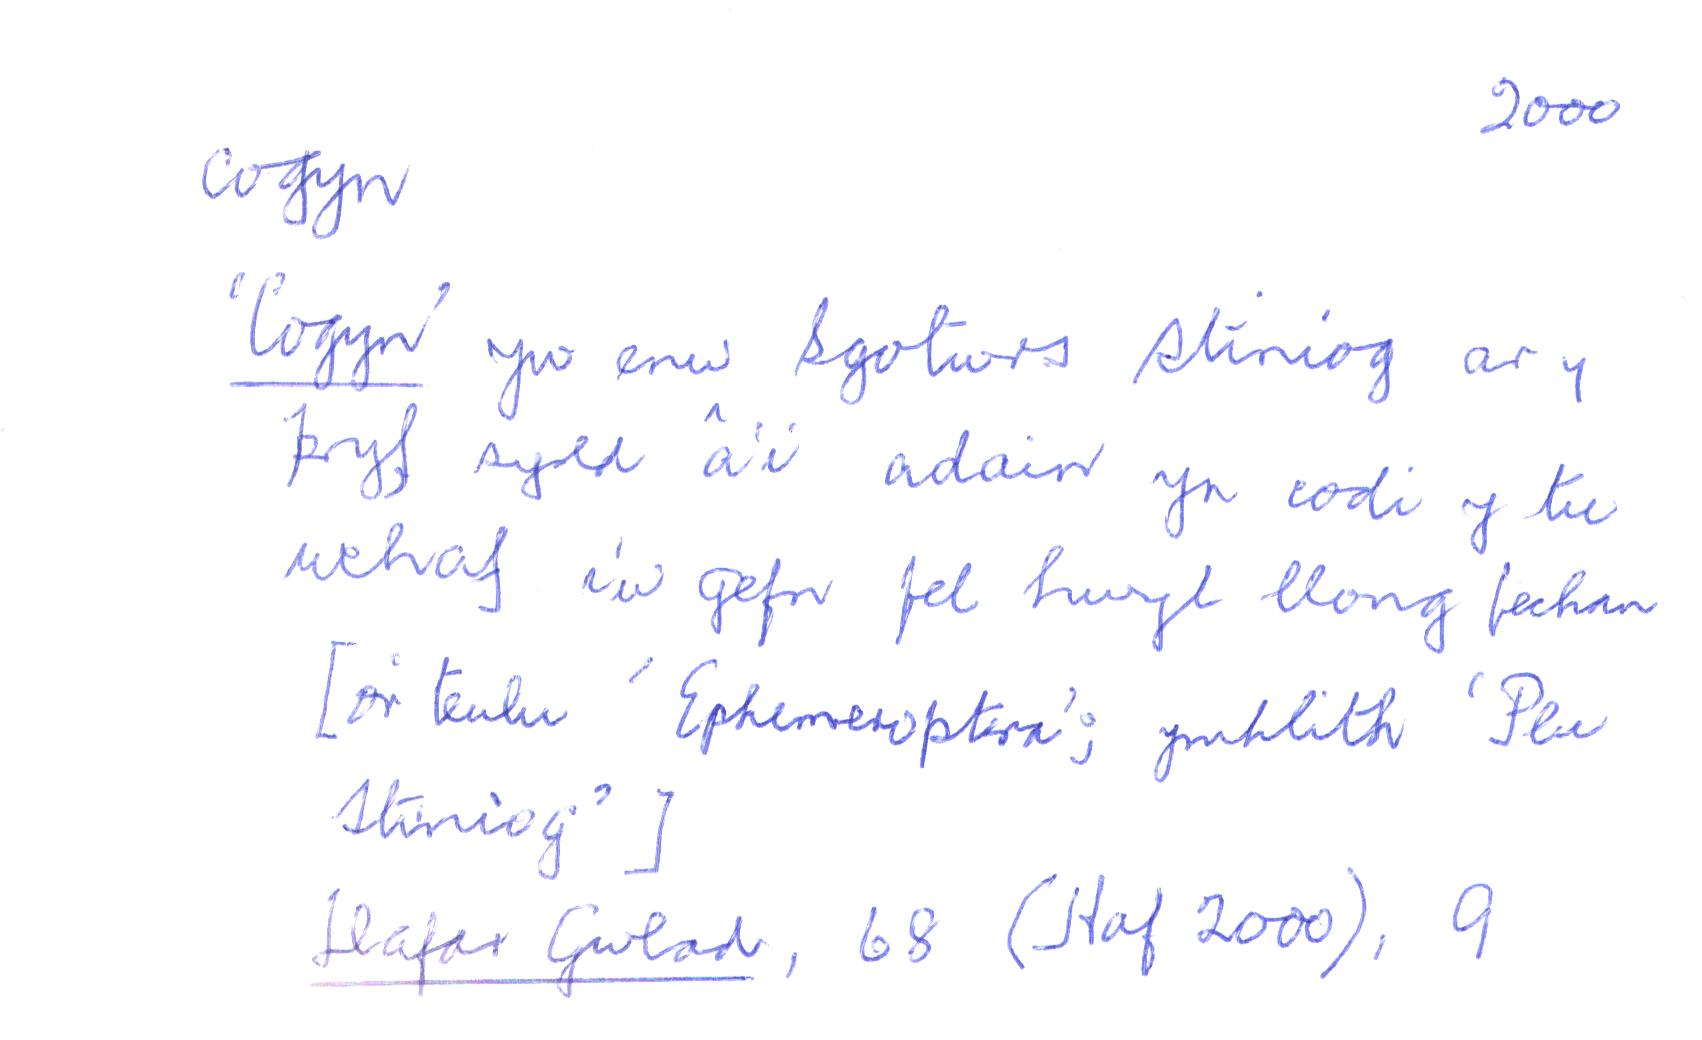 2000
cogyn
'Cogyn' yw enw sgotwrs Stiniog ar y
pryf sydd â'i adain yn codi y tu
uchaf i'w gefn fel hwyl llong fechan
[o'r teulu 'Ephemeroptera'; ymhlith 'Plu
Stiniog']
Llafar Gwlad, 68 (Haf 2000), 9